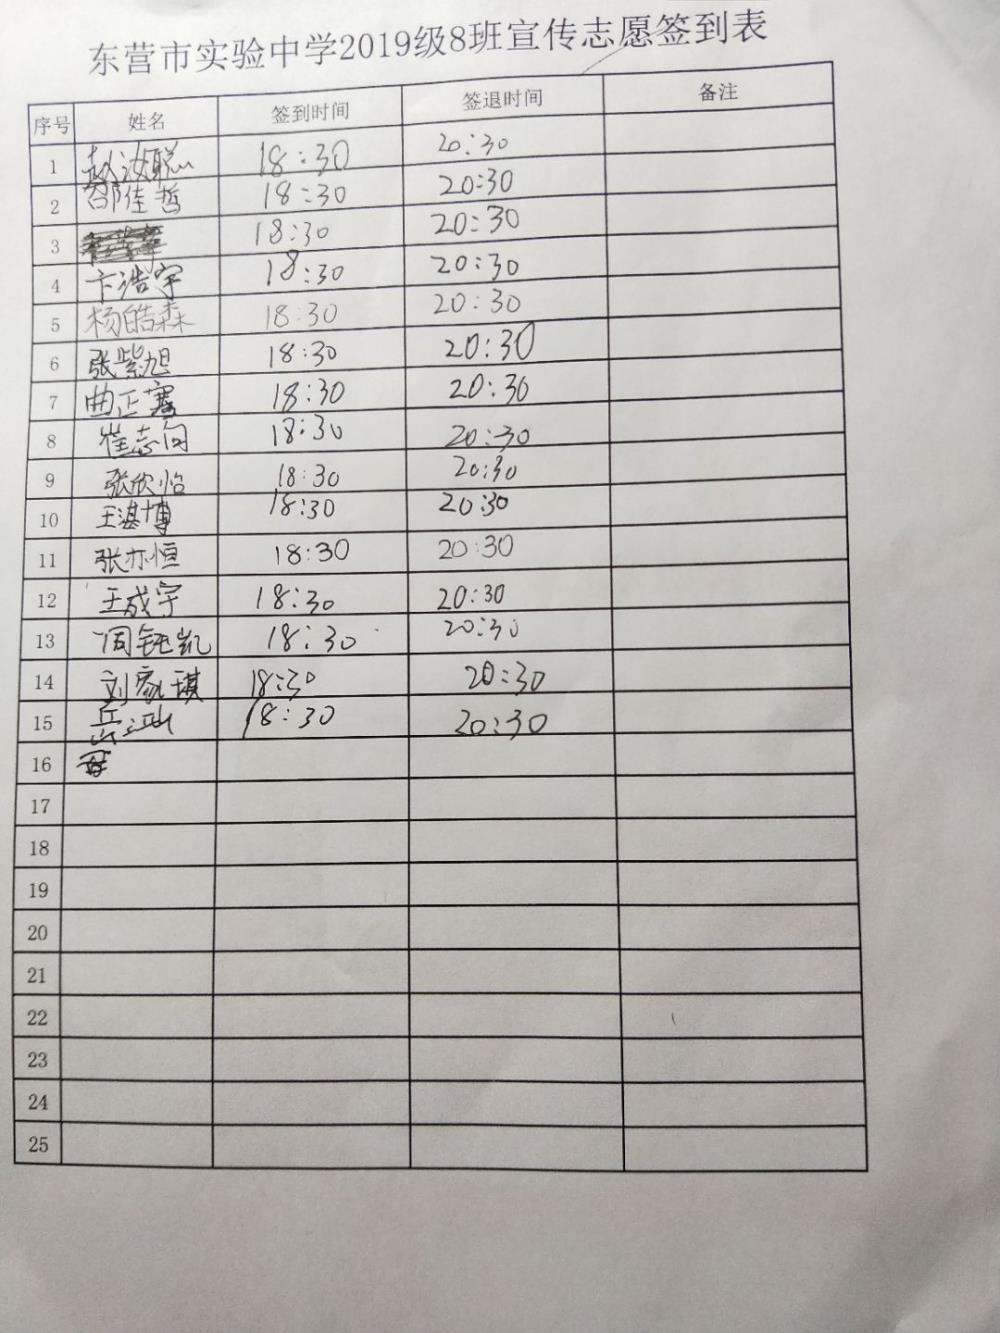 东营市实验中学2019级8班宣传志愿签到表
序号 姓名 签到时间 签退时间 备注
1 赵汝聪 18:30 20:30
2 邵佳哲 18:30 20:30
3 18:30 20:30
4 卞浩宇 18:30 20:30
5 杨皓森 18:30 20:30
6 张紫旭 18:30 20:30
7 曲正骞 18:30 20:30
8 崔志向 18:30 20:30
9 张欣怡 18:30 20:30
10 王湛博 18:30 20:30
11 张亦恒 18:30 20:30
12 王成宇 18:30 20:30
13 周钰凯 18:30 20:30
14 刘家琪 18:30 20:30
15 岳 18:30 20:30
16
17
18
19
20
21
22
23
24
25